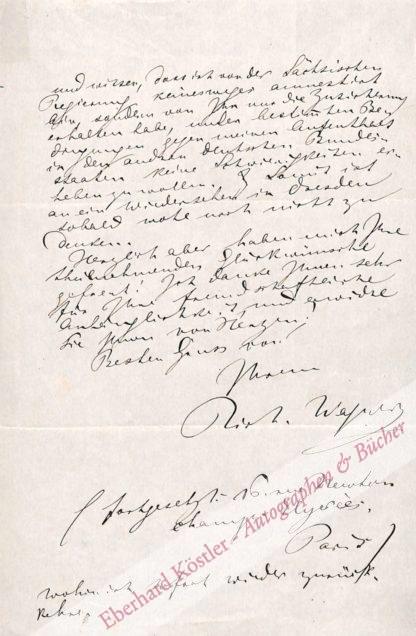 und wissen, dass ich von der Sächsischen
Regierung keineswegs amnestirt
bin, sondern von ihr nur die Zusicherung
erhalten habe, unter bestimmten Be-
dingungen gegen meinen Aufenthalt
in den andren deutschen Bundes-
staaten keine Schwierigkeiten er-
heben zu wollen. Somit ist
an ein Wiedersehen in Dresden
sobald wohl noch nicht zu
denken.
Herzlich aber haben mich Ihre
theilnehmenden Glückwünsche
gefreut! Ich danke Ihnen sehr
für Ihre freundschaftliche
Anhänglichkeit, und erwidre
sie Ihnen von Herzen!
Besten Gruss von
Ihrem
Rich. Wagner
(fortgesetzt: 16. rue Newton
Champs élysées.
Paris)
wohin ich sofort wieder zurück-
kehre.
Eberhard Köstler - Autographen & Bücher